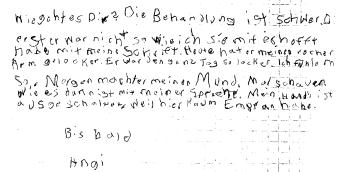 Wie gehtes Dir? Die Behandlung ist schwer.
erster war nicht so wie ich Sie mit erhofft
habe mit meine Heute hat er meinen rechter
Arm gelocker. Er war den ganz Tag so locker. Ich
So. Morgen machter meinen Mund. Malschauen
wie es dann ist mit meiner Sprache. Mein Handy ist
ausgeschalten weil hier kaum Empfan habe.
Bis bald
Angi